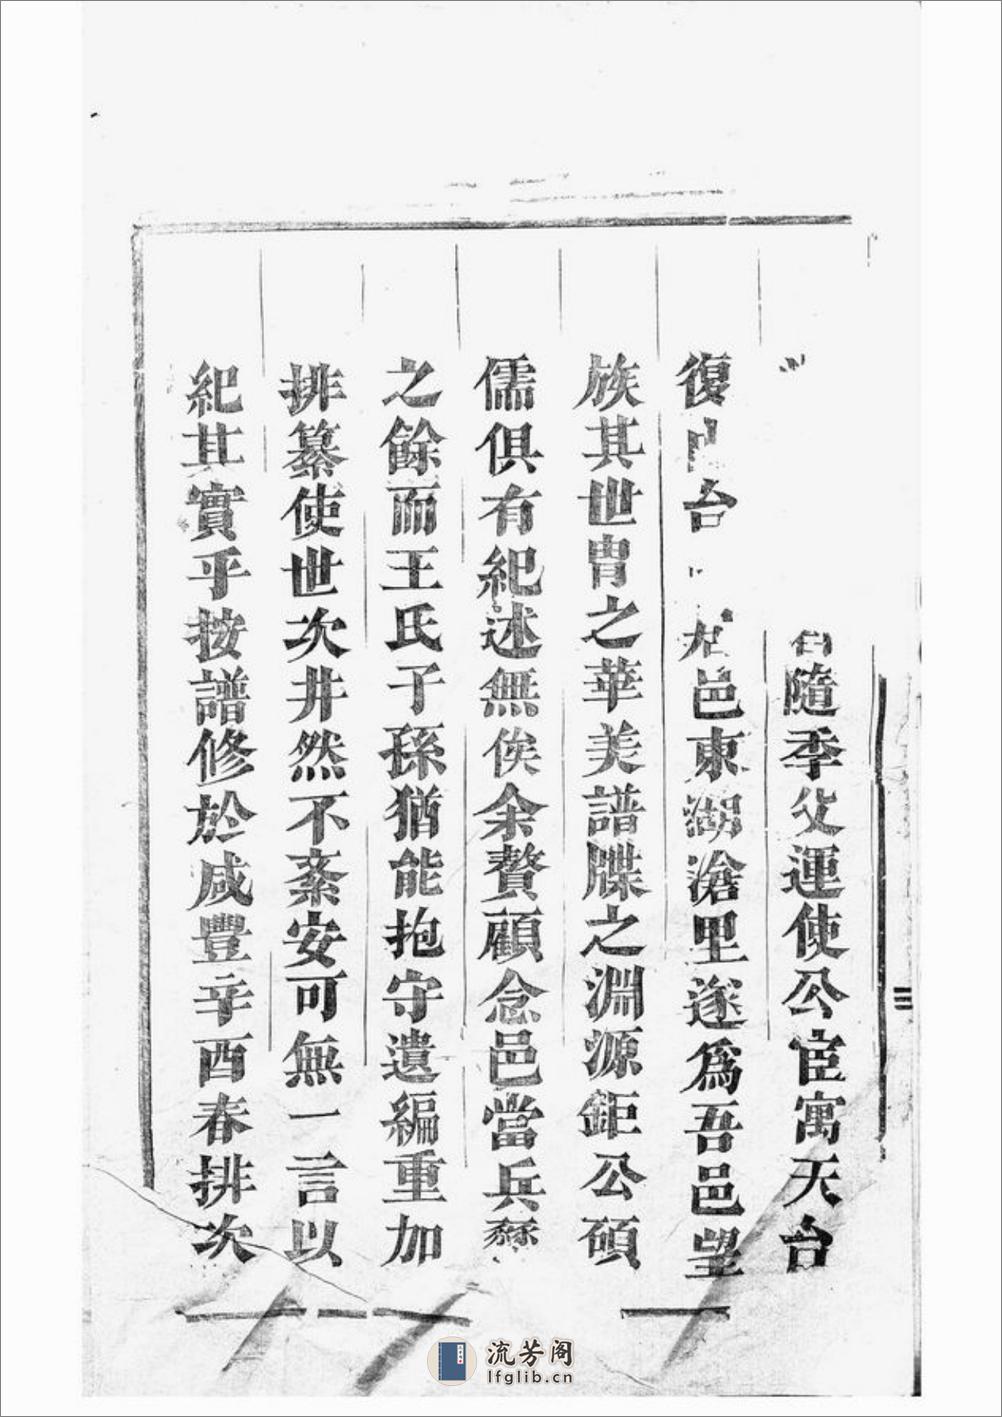 隨季父運使公宦寓天台
復台邑東湖滄里遂為吾邑望
族其世冑之華美譜牒之淵源鉅公碩
儒俱有紀述無俟余贅顧念邑當兵燹
之餘而王氏子孫猶能抱守遺編重加
排纂使世次井然不紊安可無一言以
紀其實乎按譜修於咸豐辛酉春排次
流芳阁
lfglib.cn